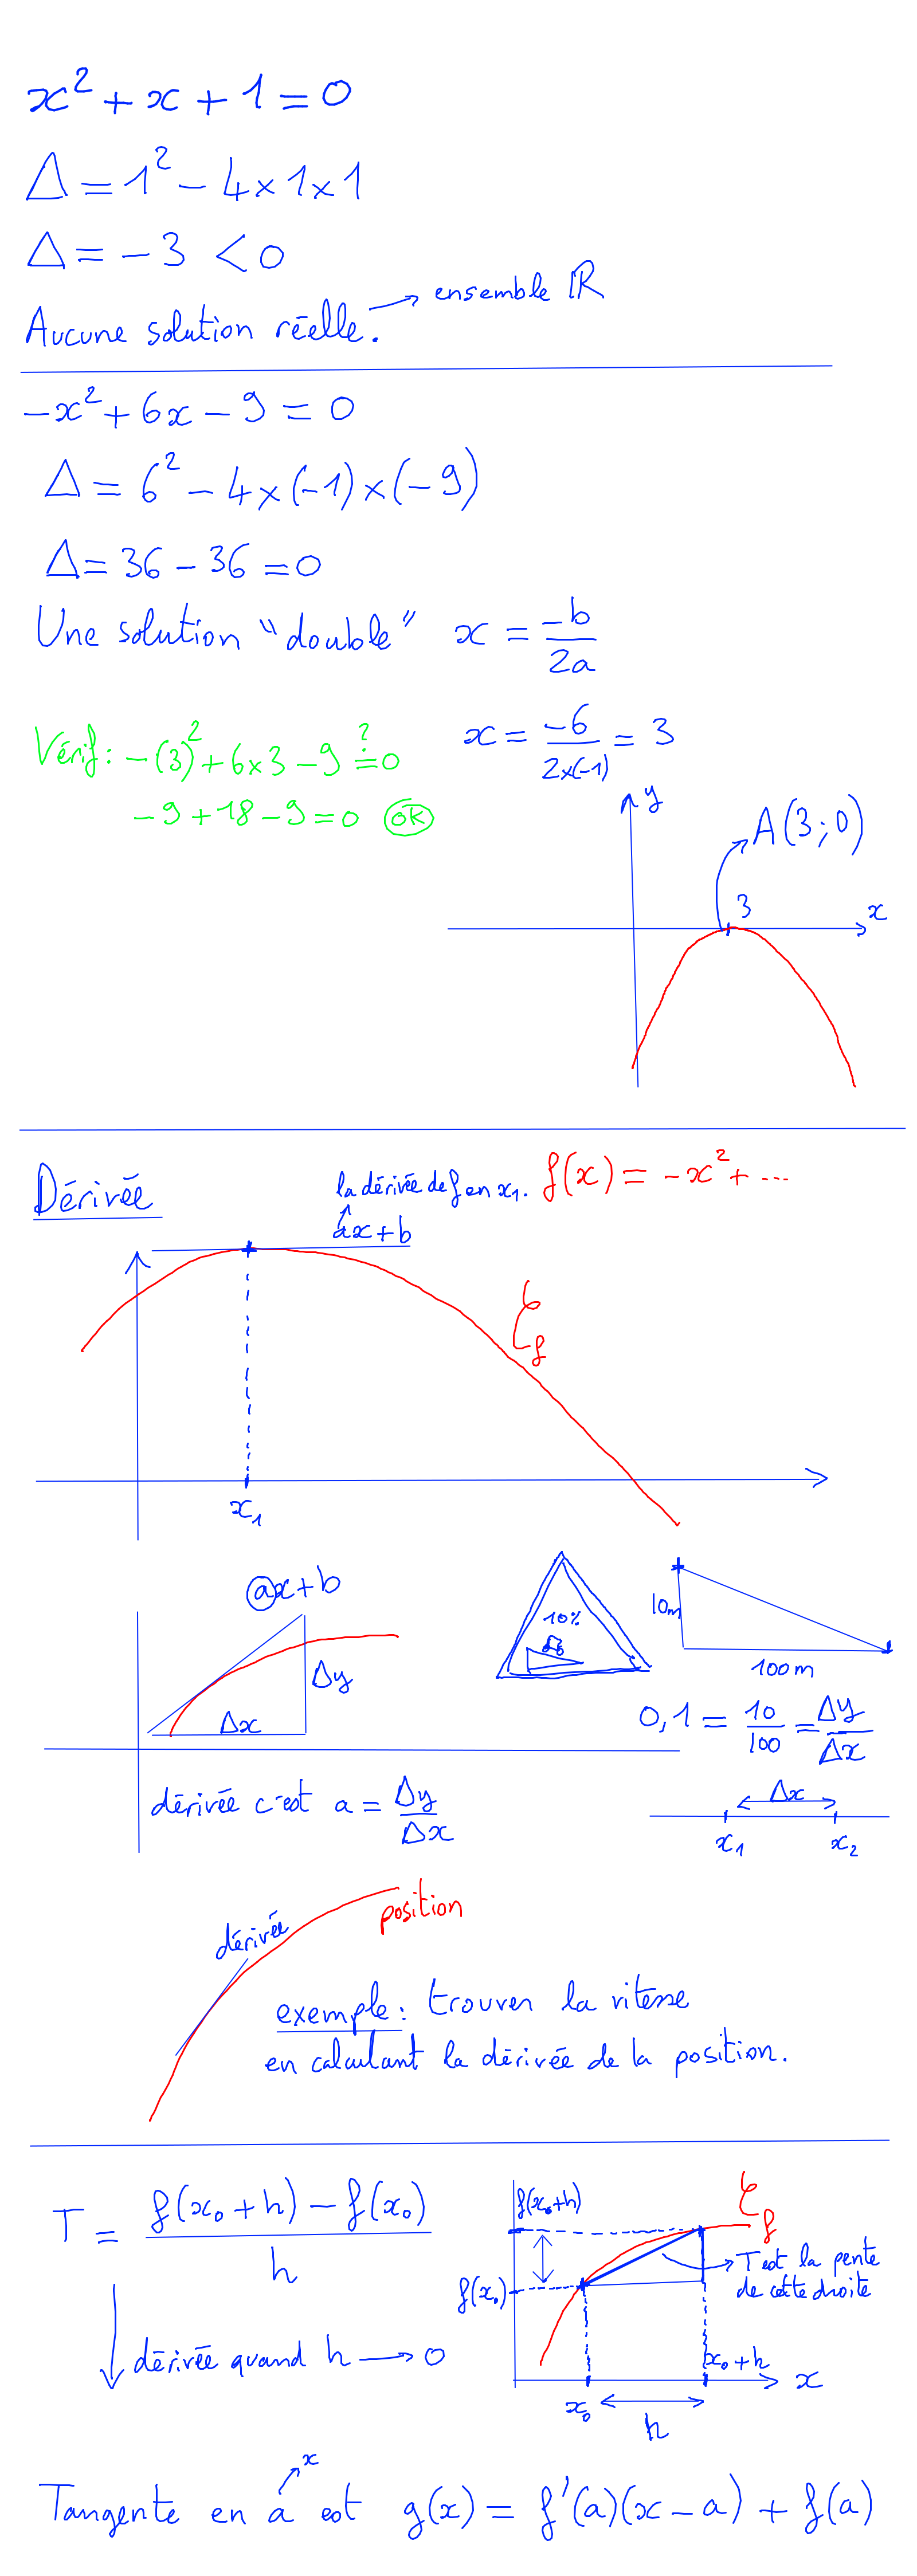 x² + x + 1 = 0
Δ = 1² - 4×1×1
Δ = -3 < 0
Aucune solution réelle. → ensemble ℝ
-x² + 6x - 9 = 0
Δ = 6² - 4×(-1)×(-9)
Δ = 36 - 36 = 0
Une solution "double" x = -b/2a
x = -6/2×(-1) = 3
Vérif : -(3)² + 6×3 - 9 ?= 0
-9 + 18 - 9 = 0 OK
y
A(3;0)
3
x
Dérivée
la dérivée de f en x₁.
f(x) = -x² + ...
ax+b
𝒞f
x₁
ax+b
Δy
Δx
10%
10m
100m
0,1 = 10/100 = Δy/Δx
dérivée c'est a = Δy/Δx
Δx
x₁ x₂
dérivée
position
exemple : trouver la vitesse
en calculant la dérivée de la position.
T = f(x₀+h) - f(x₀)/h
dérivée quand h → 0
f(x₀+h)
𝒞f
T est la pente
de cette droite
f(x₀)
x₀+h
x₀
x
h
x
Tangente en a est g(x) = f'(a)(x-a) + f(a)